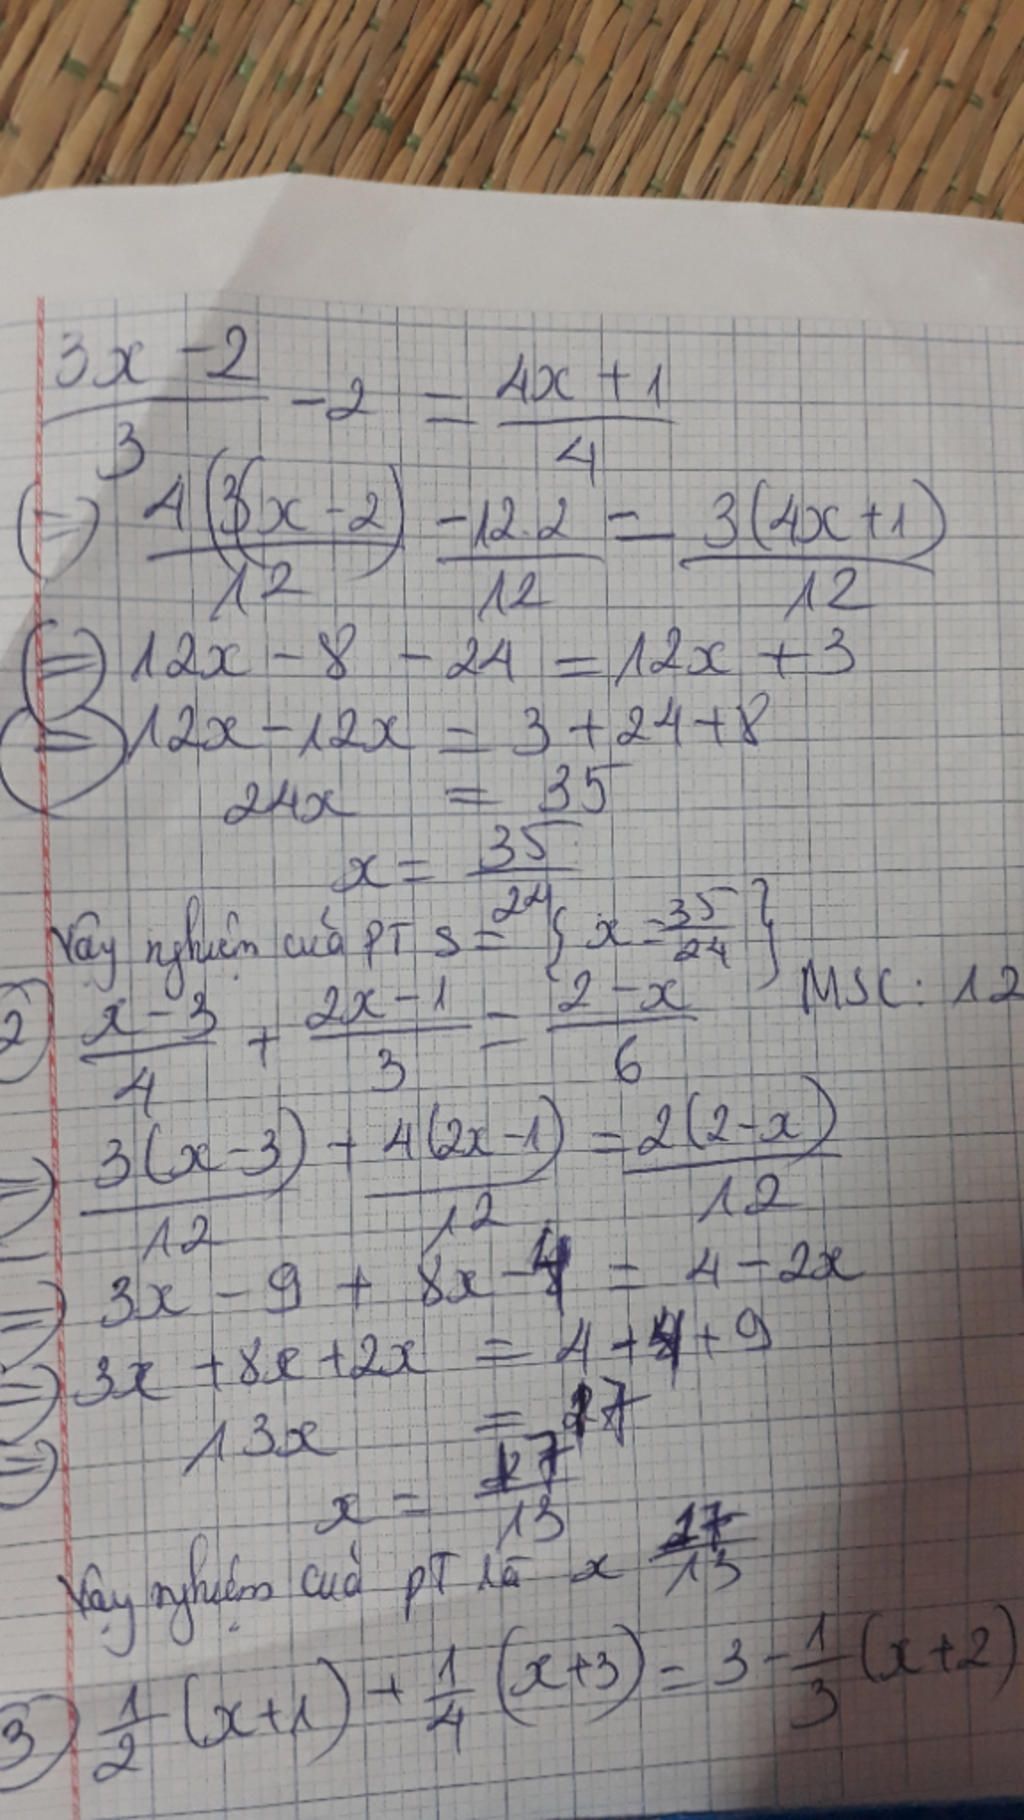 3x - 2 / 3 - 2 = 4x + 1 / 4
(=) 4(3(x - 2) / 12 - 12.2 / 12 = 3(4x + 1) / 12
(=) 12x - 8 - 24 = 12x + 3
(=) 12x - 12x = 3 + 24 + 8
24x = 35
x = 35 / 24
Vậy nghiệm cuả PT S = { x = 35 / 24 }
2) x - 3 / 4 + 2x - 1 / 3 = 2 - x / 6 MSC: 12
(=) 3(x - 3) / 12 + 4(2x - 1) / 12 = 2(2 - x) / 12
(=) 3x - 9 + 8x - 4 = 4 - 2x
(=) 3x + 8x + 2x = 4 + 4 + 9
(=) 13x = 17
x = 17 / 13
Vậy nghiệm cuả PT là x 17 / 13
3) 1 / 2 (x + 1) + 1 / 4 (x + 3) = 3 - 1 / 3 (x + 2)